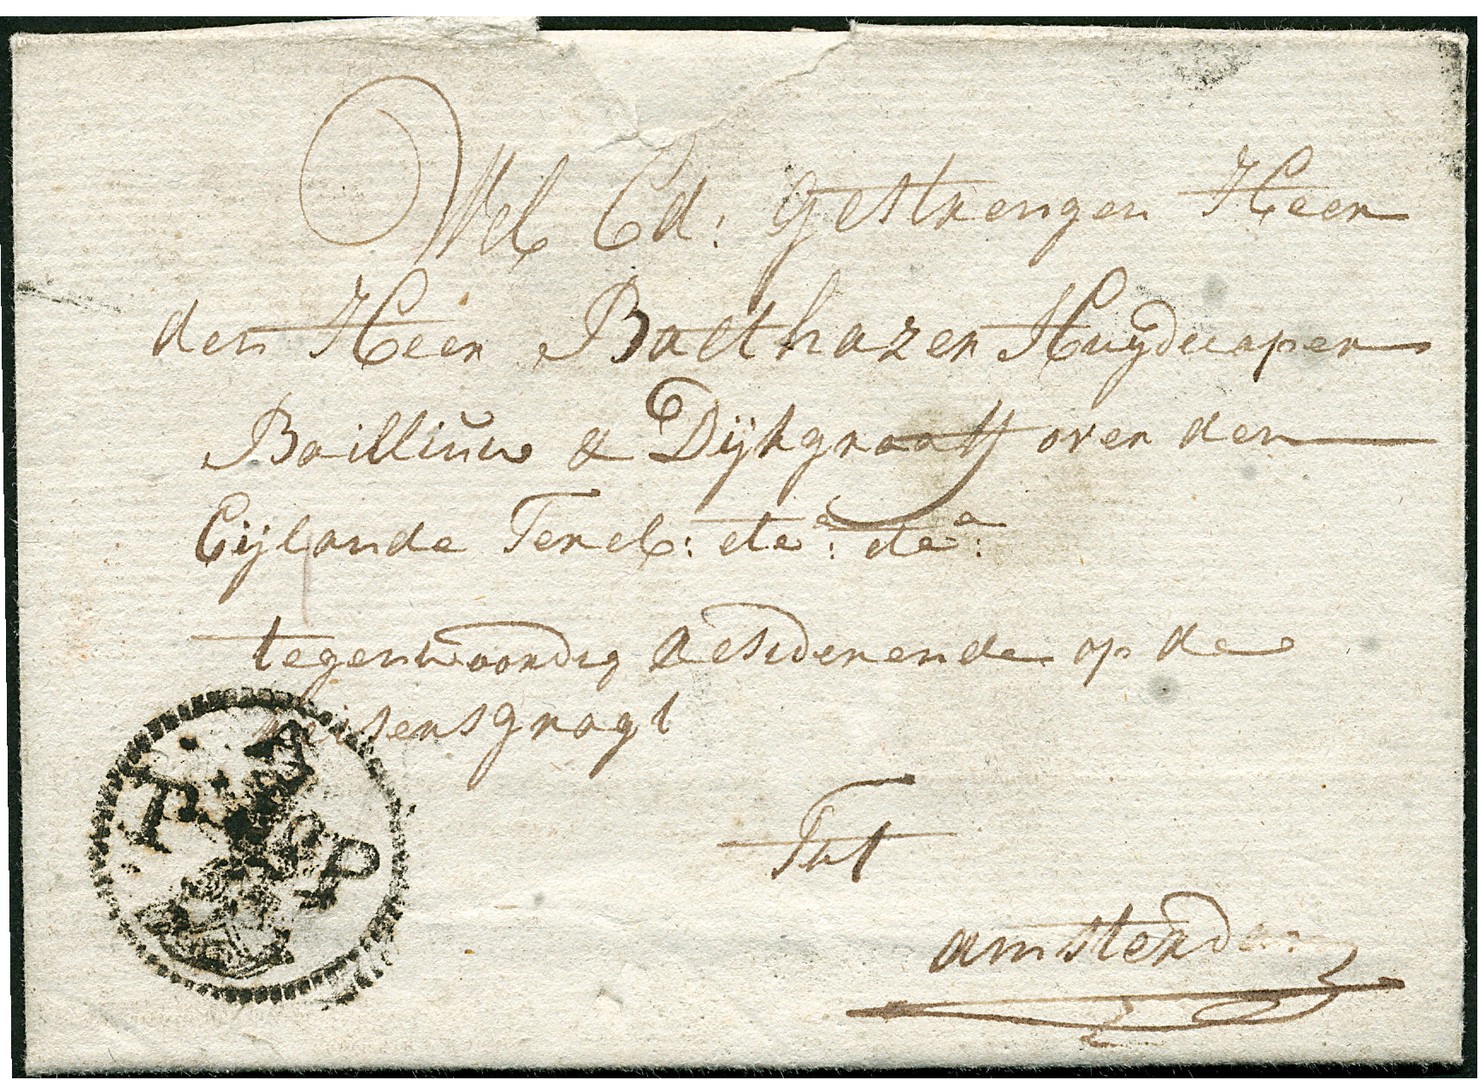 Wel Ed: Gestrengen Heer
den Heer Balthazer Huydecoper
Bailliuw & Dijkgraaff over den
Eijlande Texel: etca: etca:
tegenwoordig Resideerende op de
keisersgragt
Tot
amsterdam
P P